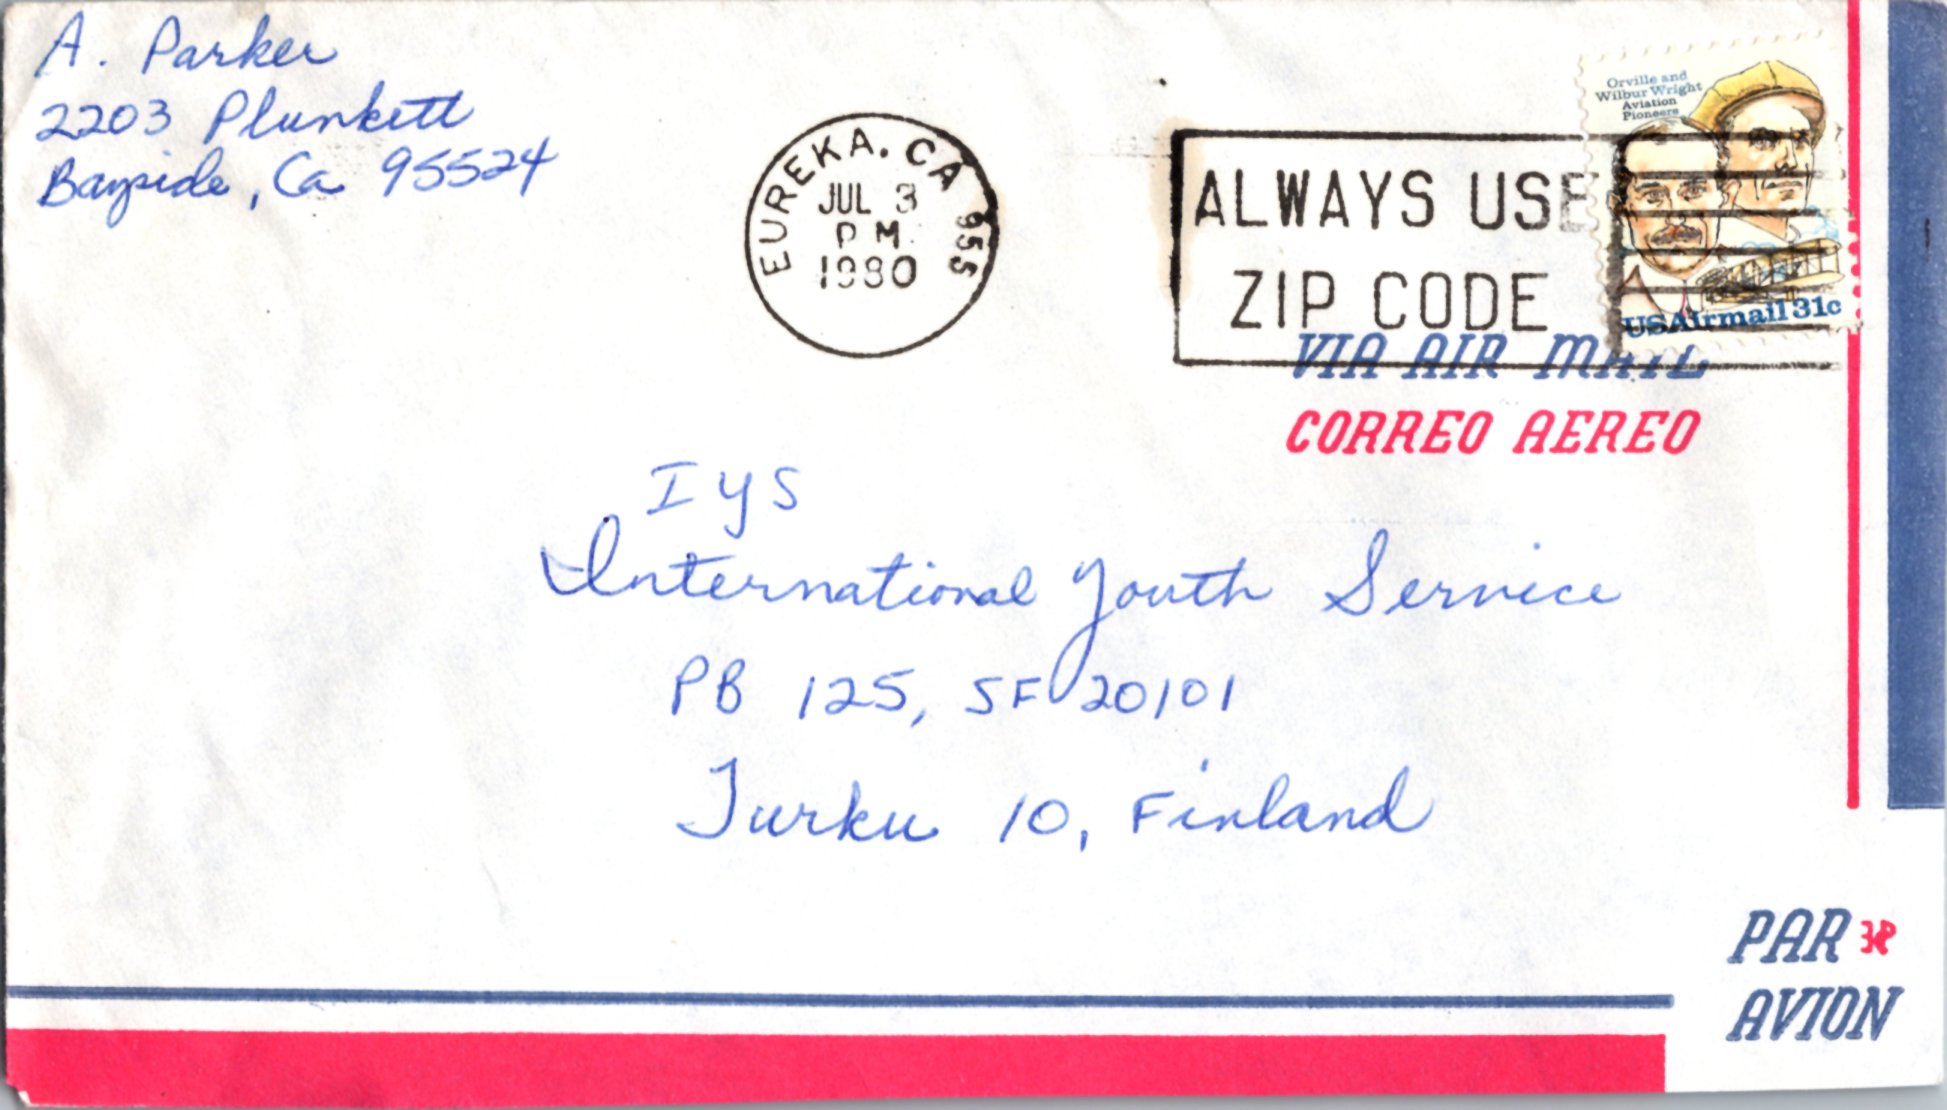 A. Parker
2203 Plunkett
Bayside, Ca 95524
EUREKA, CA 955
JUL 3
PM
1980
ALWAYS USE
ZIP CODE
Orville and
Wilbur Wright
Aviation
Pioneers
USAirmail 31c
VIA AIR MAIL
CORREO AEREO
IYS
International Youth Service
PB 125, SF 20101
Turku 10, Finland
PAR
AVION